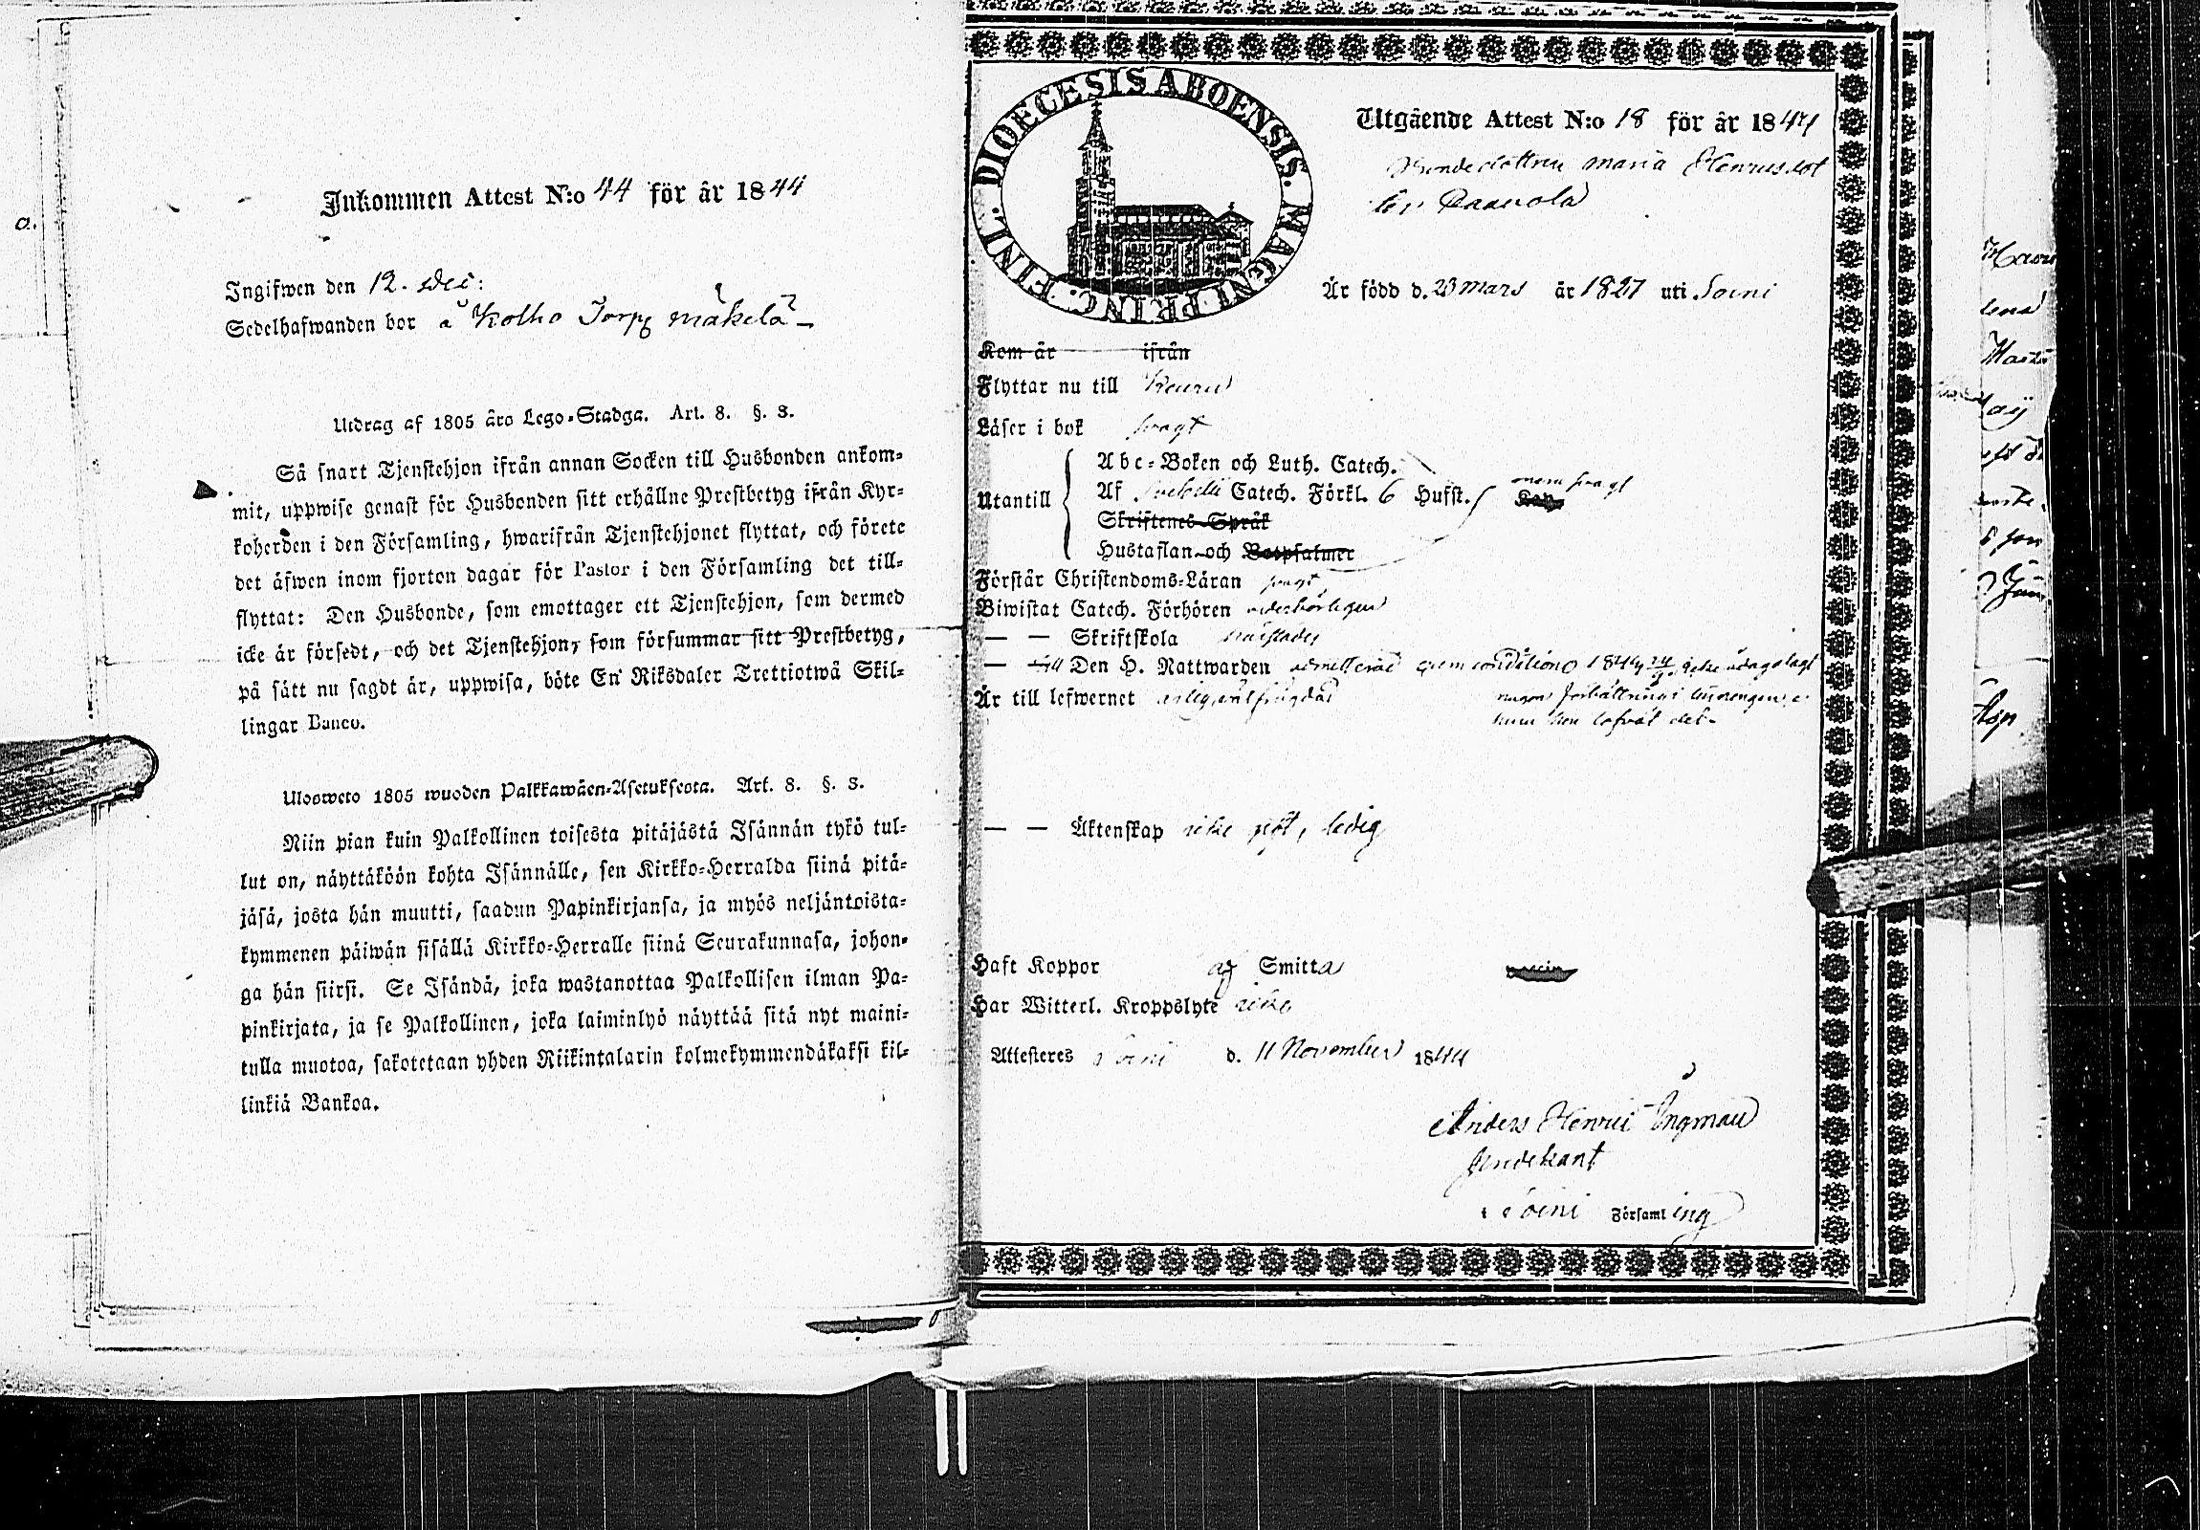 Inkommen Attest N:o 44 för år 1844
Ingifwen den 12. Dec:
Sedelhafwanden bor å Kolho Torp Mäkelä
Utdrag af 1805 åro Lego-Stadga. Art. 8. §. 3.
Så snart Tjenstehjon ifrån annan Socken till Husbonden ankom-
mit, uppwise genast för Husbonden sitt erhållne Prestbetyg ifrån Kyr-
koherden i den Församling, hwarifrån Tjenstehjonet flyttat, och förete
det äfwen inom fjorton dagar för Pastor i den Församling det till-
flyttat: Den Husbonde, som emottager ett Tjenstehjon, som dermed
icke är försedt, och det Tjenstehjon, som försummar sitt Prestbetyg,
på sätt nu sagdt är, uppwisa, böte En Riksdaler Trettiotwå Skil-
lingar Banco.
Ulosweto 1805 wuoden Palkkawäen-Asetuksesta. Art. 8. §. 3.
Niin pian kuin Palkollinen toisesta pitäjästä Isännän tykö tul-
lut on, näyttäköön kohta Isännälle, sen Kirkko-Herralda siinä pitä-
jäsä, josta hän muutti, saadun Papinkirjansa, ja myös neljäntoista-
kymmenen päiwän sisällä Kirkko-Herralle siinä Seurakunnasa, johon-
ga hän siirsi. Se Isändä, joka wastanottaa Palkollisen ilman Pa-
pinkirjata, ja se Palkollinen, joka laiminlyö näyttää sitä nyt maini-
tulla muotoa, sakotetaan yhden Riikintalarin kolmekymmendäkaksi kil-
linkiä Bankoa.
DIOECESIS ABOENSIS. MAGNI PRINC. FINL.
Utgående Attest N:o 18 för år 1844
Bondedottren Maria Henricsdot
ter
Är född d. 23 Mars år 1827 uti Soini
Kom år ifrån
Flyttar nu till Keuru
Läser i bok svagt
Utantill
Abc-Boken och Luth. Catech.
Af Svebelii Catech. Förkl. 6 Hufst.
svagt
Skriftenes Språk
Hustaflan och Botpsalmer
Förstår Christendoms-Läran svagt
Biwistat Catech. Förhören
— — Skriftskola
— till Den H. Nattwarden
Är till lefwernet
hon lofvat det
— — Äktenskap icke gift, ledig
Haft Koppor af Smitta
Har Witterl. Kroppslyte icke
Attesteres Soini d. 11 November 1844
Anders Henric Ingman
Predikant
i Soini Församling